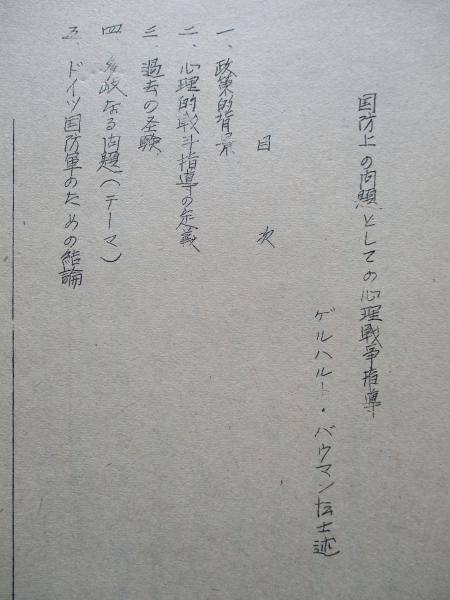 国防上の問題としての心理戦争指導
ゲルハルト・バウマン博士述
目次
一、政策的背景
二、心理的戦斗指導の定義
三、過去の圣験
四、多岐なる問題(テーマ)
五、ドイツ国防軍のための結論